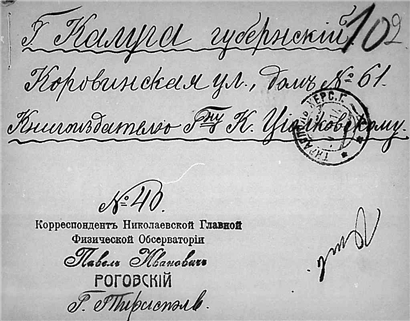 Г Калуга губернскій 102
Коровинская ул., домъ № 61.
Книгоиздателю Гну К. Ціолковскому.
ТИРАСПОЛЬ ХЕРС. Г.
№ 40.
Корреспондентъ Николаевской Главной
Физической Обсерваторіи
Павелъ Ивановичъ
РОГОВСКІЙ
Г. Тирасполь.